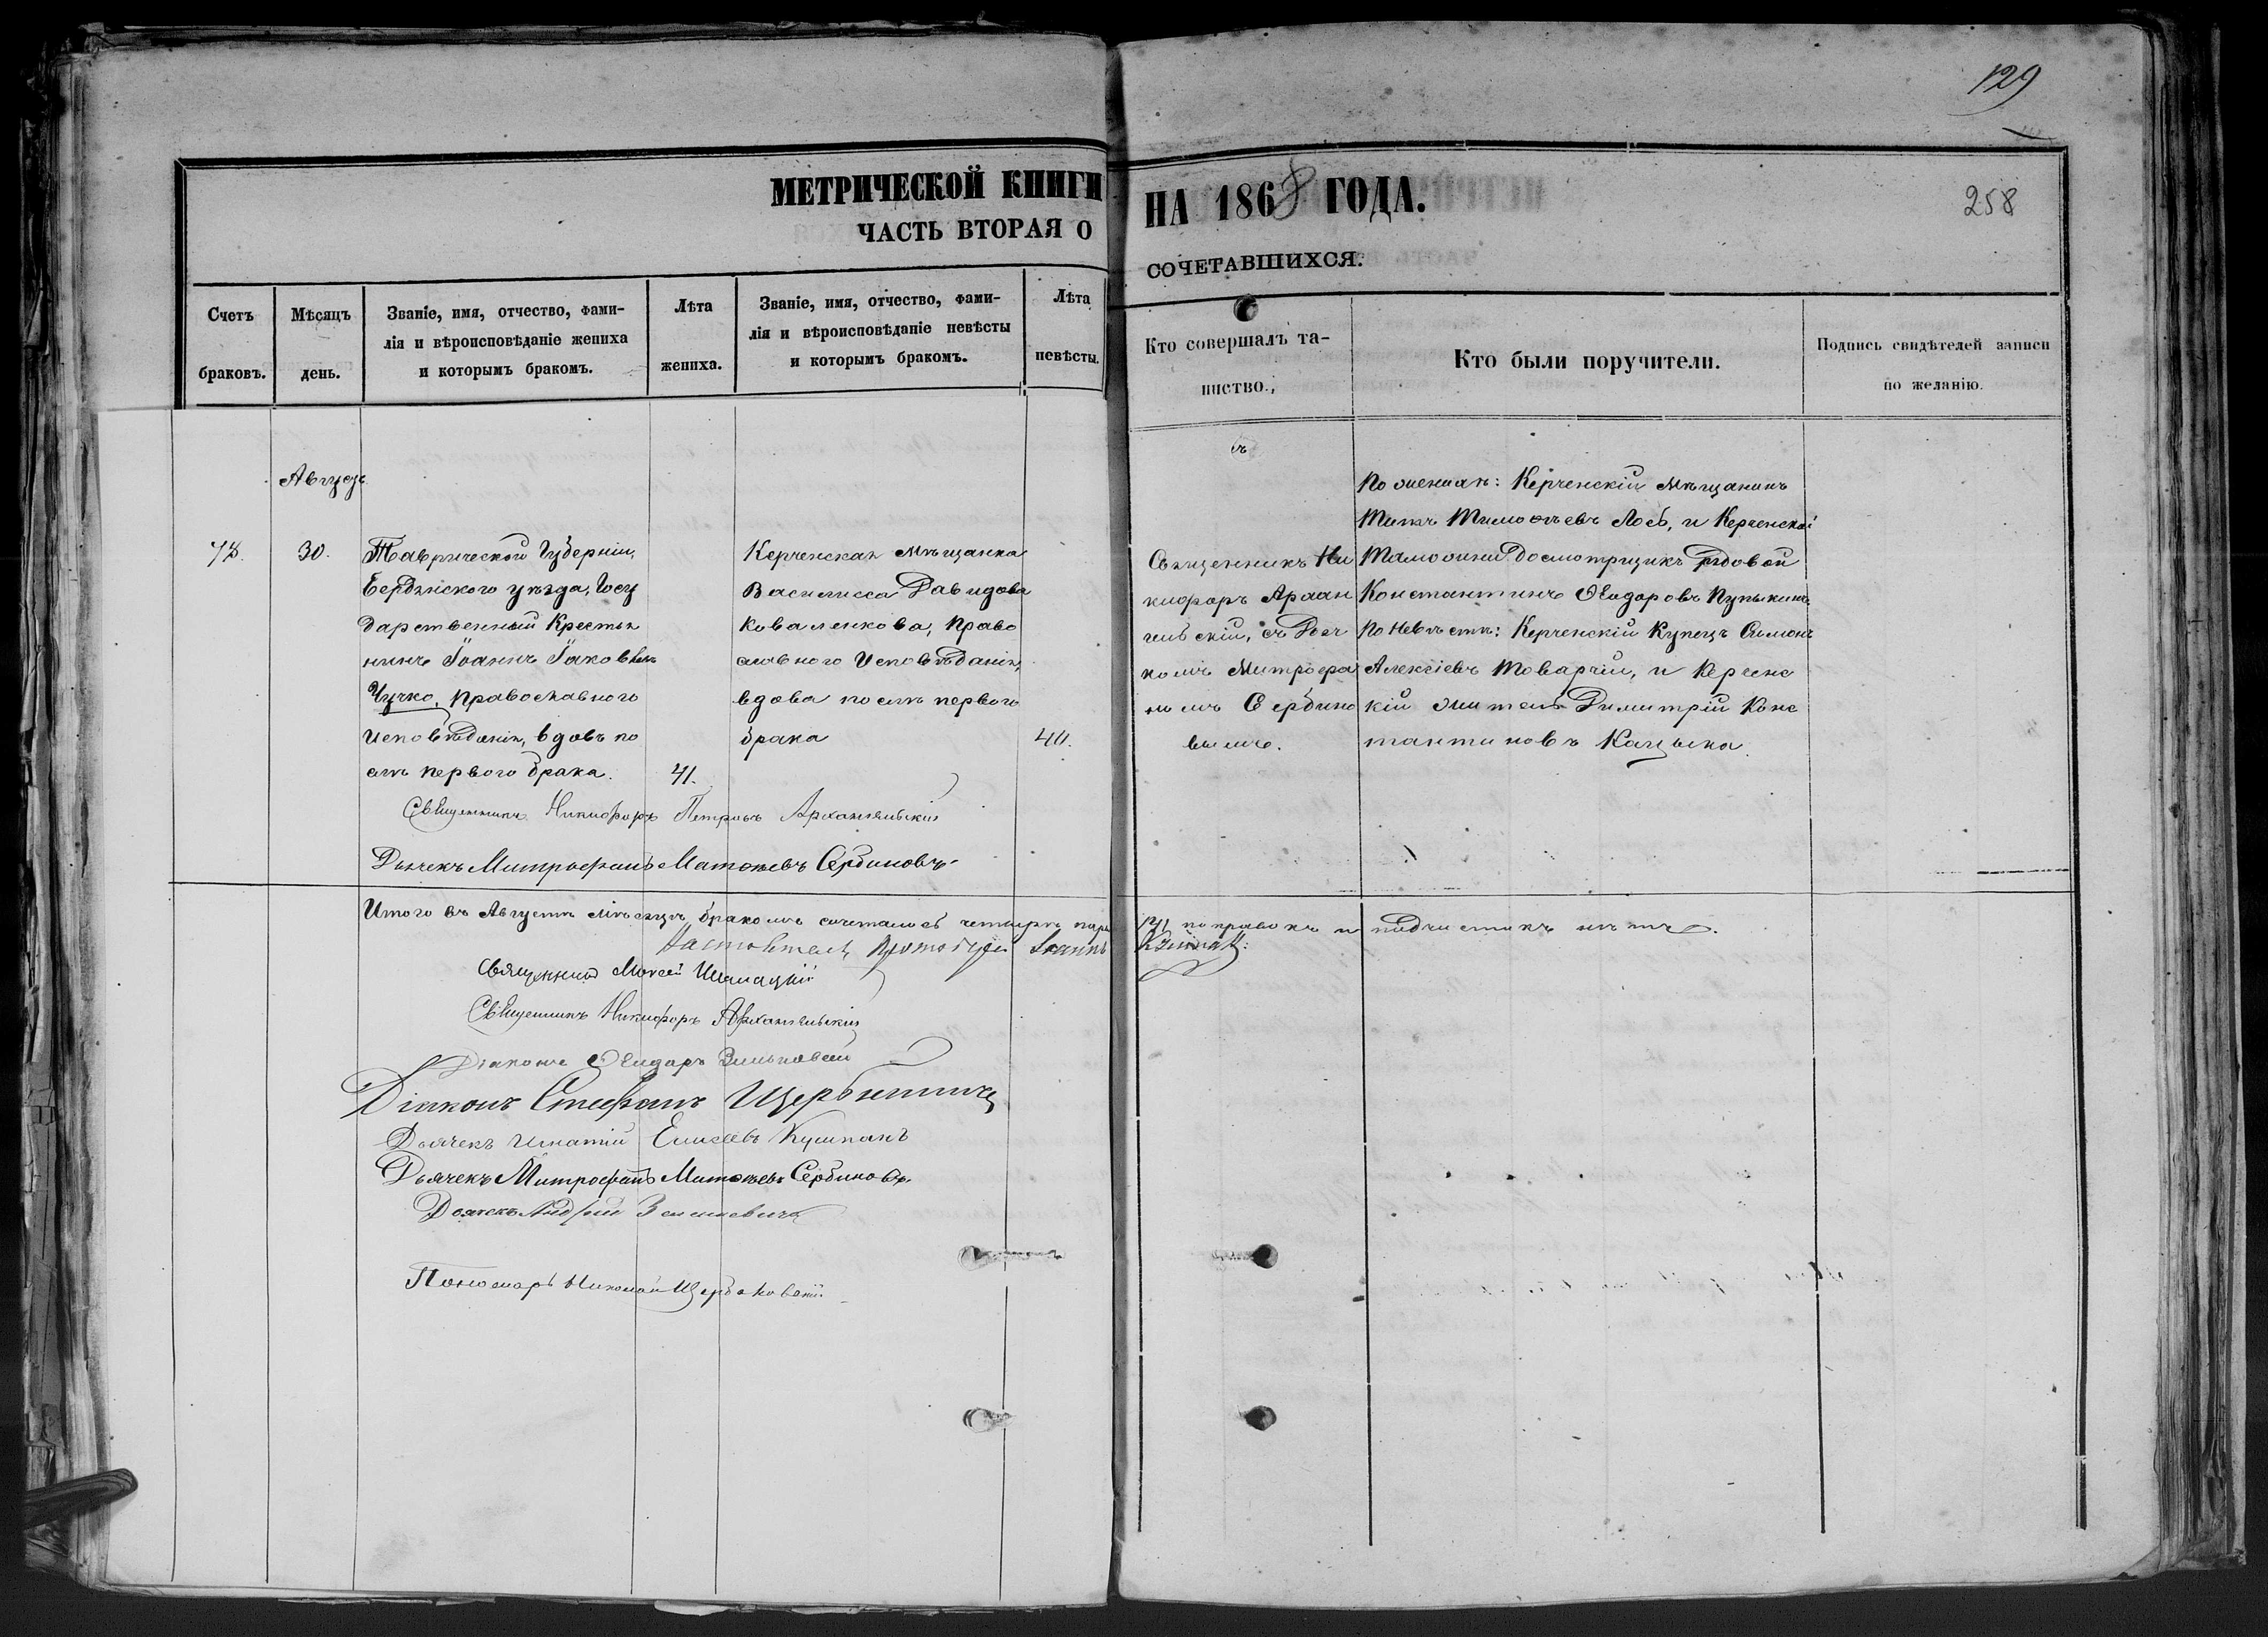 129
МЕТРИЧЕСКОЙ КНИГИ НА 1868 ГОДА.
258
ЧАСТЬ ВТОРАЯ О СОЧЕТАВШИХСЯ.
Счетъ браковъ.
Мѣсяцъ день.
Званіе, имя, отчество, фами-
лія и вѣроисповѣданіе жениха
и которымъ бракомъ.
Лѣта жениха.
Званіе, имя, отчество, фами-
лія и вѣроисповѣданіе невѣсты
и которымъ бракомъ.
Лѣта невѣсты.
Кто совершалъ та-
инство.
Кто были поручители.
Подпись свидѣтелей записи
по желанію.
Августъ
78.
30.
Таврической Губерніи,
Бердянского уѣзда, Госу
дарственный Крестья
нинъ Іоаннъ Іаковлевъ
Чучко, православного
исповѣданія, вдовъ по
слѣ первого брака.
41.
Керченская мѣщанка
Василисса Давидова
Коваленкова, право
славного исповѣданія,
вдова послѣ первого
брака
40.
Священникъ Ни
кифоръ Архан
гельскій, съ Дьяч
комъ Митрофа
номъ Сербино
вымъ.
По женихѣ: Керченскій мѣщанинъ
Титъ Тимофѣевъ Лось, и Керченской
Таможни Досмотрщикъ рядовой
Константинъ Ѳеодоровъ Пупыкинъ
По невѣстѣ: Керченскій Купецъ Симонъ
Алексіевъ Товарчій, и Керченс
кій житель Димитрій Конс
тантиновъ Кацыка.
Священникъ Никифоръ Петровъ Архангельскій
Дьячекъ Митрофанъ Матѳеевъ Сербиновъ
Итого въ Августѣ мѣсяцѣ бракомъ сочеталось четыре пары поправокъ и подчистокъ нѣтъ.
Настоятель Протоіерей Іоаннъ
Священникъ Моисей
Священникъ Никифоръ Архангельскій
Діаконъ Ѳеодоръ Зеньковскій
Діаконъ Стефанъ Щербининъ
Дьячекъ Игнатій Елисеевъ Кушпанъ
Дьячекъ Митрофанъ Матѳеевъ Сербиновъ
Дьячекъ Андрей
Пономарь Николай Щербаковскій